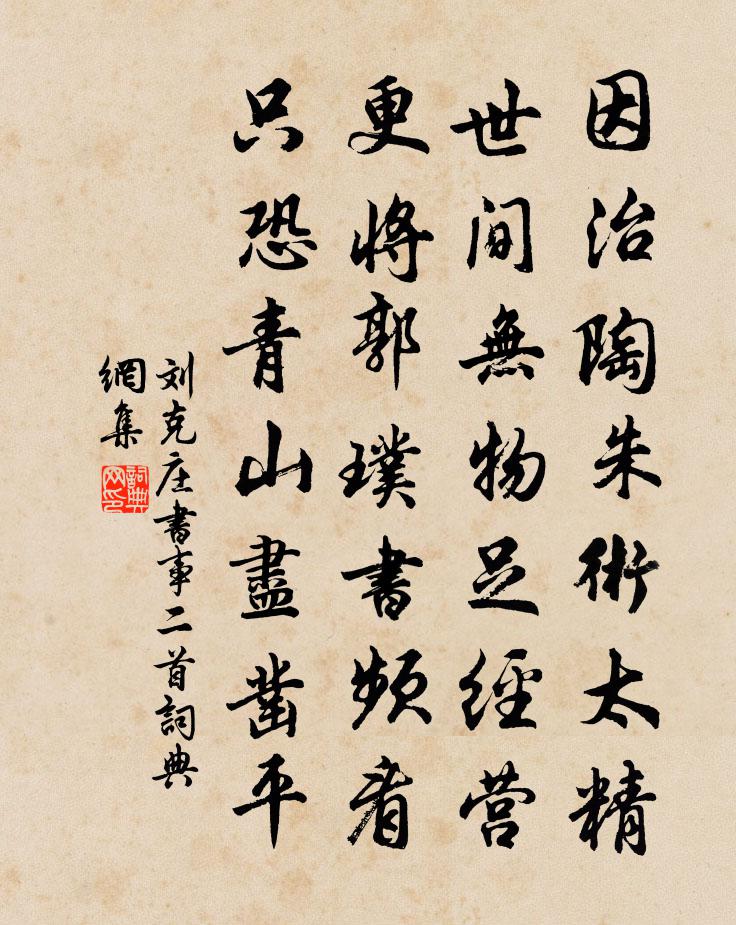 因治陶朱術太精
世间無物足經营
更將郭璞書頻看
只恐青山盡凿平
刘克庄書事二首詞典
網集
詞典
网印